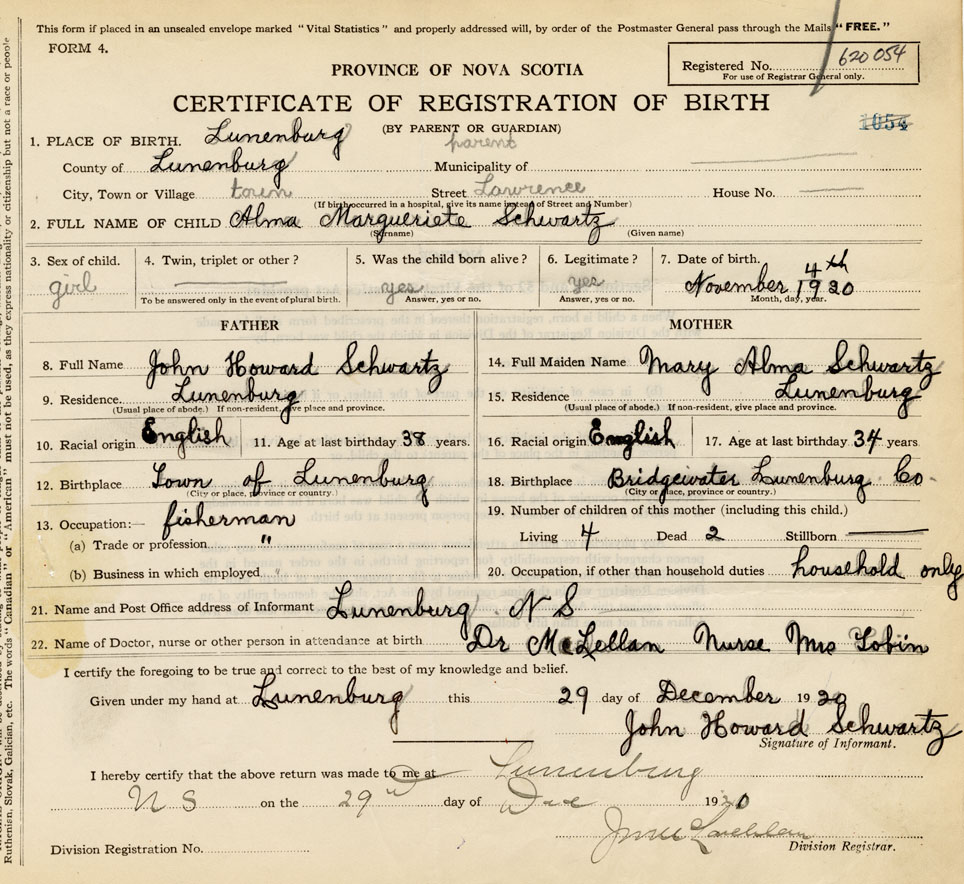 This form if placed in an unsealed envelope marked "Vital Statistics" and properly addressed will, by order of the Postmaster General pass through the Mails "FREE."
FORM 4.
Registered No. 620 054
For use of Registrar General only.
PROVINCE OF NOVA SCOTIA
CERTIFICATE OF REGISTRATION OF BIRTH
1054
(BY PARENT OR GUARDIAN)
parent
1. PLACE OF BIRTH. Lunenburg
County of Lunenburg Municipality of
City, Town or Village town Street Lawrence House No.
(If birth occurred in a hospital, give its name instead of Street and Number)
2. FULL NAME OF CHILD Alma Margueriete Schwartz
(Surname) (Given name)
3. Sex of child. 4. Twin, triplet or other? 5. Was the child born alive? 6. Legitimate? 7. Date of birth.
girl yes yes November 4th 1920
To be answered only in the event of plural birth. Answer, yes or no. Answer, yes or no. Month, day, year.
FATHER MOTHER
8. Full Name John Howard Schwartz 14. Full Maiden Name Mary Alma Schwartz
9. Residence. Lunenburg 15. Residence Lunenburg
(Usual place of abode.) If non-resident, give place and province. (Usual place of abode.) If non-resident, give place and province.
10. Racial origin English 11. Age at last birthday 38 years. 16. Racial origin English 17. Age at last birthday 34 years.
12. Birthplace Town of Lunenburg 18. Birthplace Bridgewater Lunenburg Co.
(City or place, province or country.) (City or place, province or country.)
13. Occupation:— fisherman 19. Number of children of this mother (including this child.)
(a) Trade or profession " Living 4 Dead 2 Stillborn
(b) Business in which employed " 20. Occupation, if other than household duties household only
21. Name and Post Office address of Informant Lunenburg N S
22. Name of Doctor, nurse or other person in attendance at birth Dr McLellan Nurse Mrs Tobin
I certify the foregoing to be true and correct to the best of my knowledge and belief.
Given under my hand at Lunenburg this 29 day of December 1920
John Howard Schwartz
Signature of Informant.
I hereby certify that the above return was made to me at Lunenburg
N S on the 29th day of Dec 1920
Division Registrar.
Division Registration No.
Ruthenian, Slovak, Galician, etc. The words "Canadian" or "American" must not be used, as they express nationality or citizenship but not a race or people